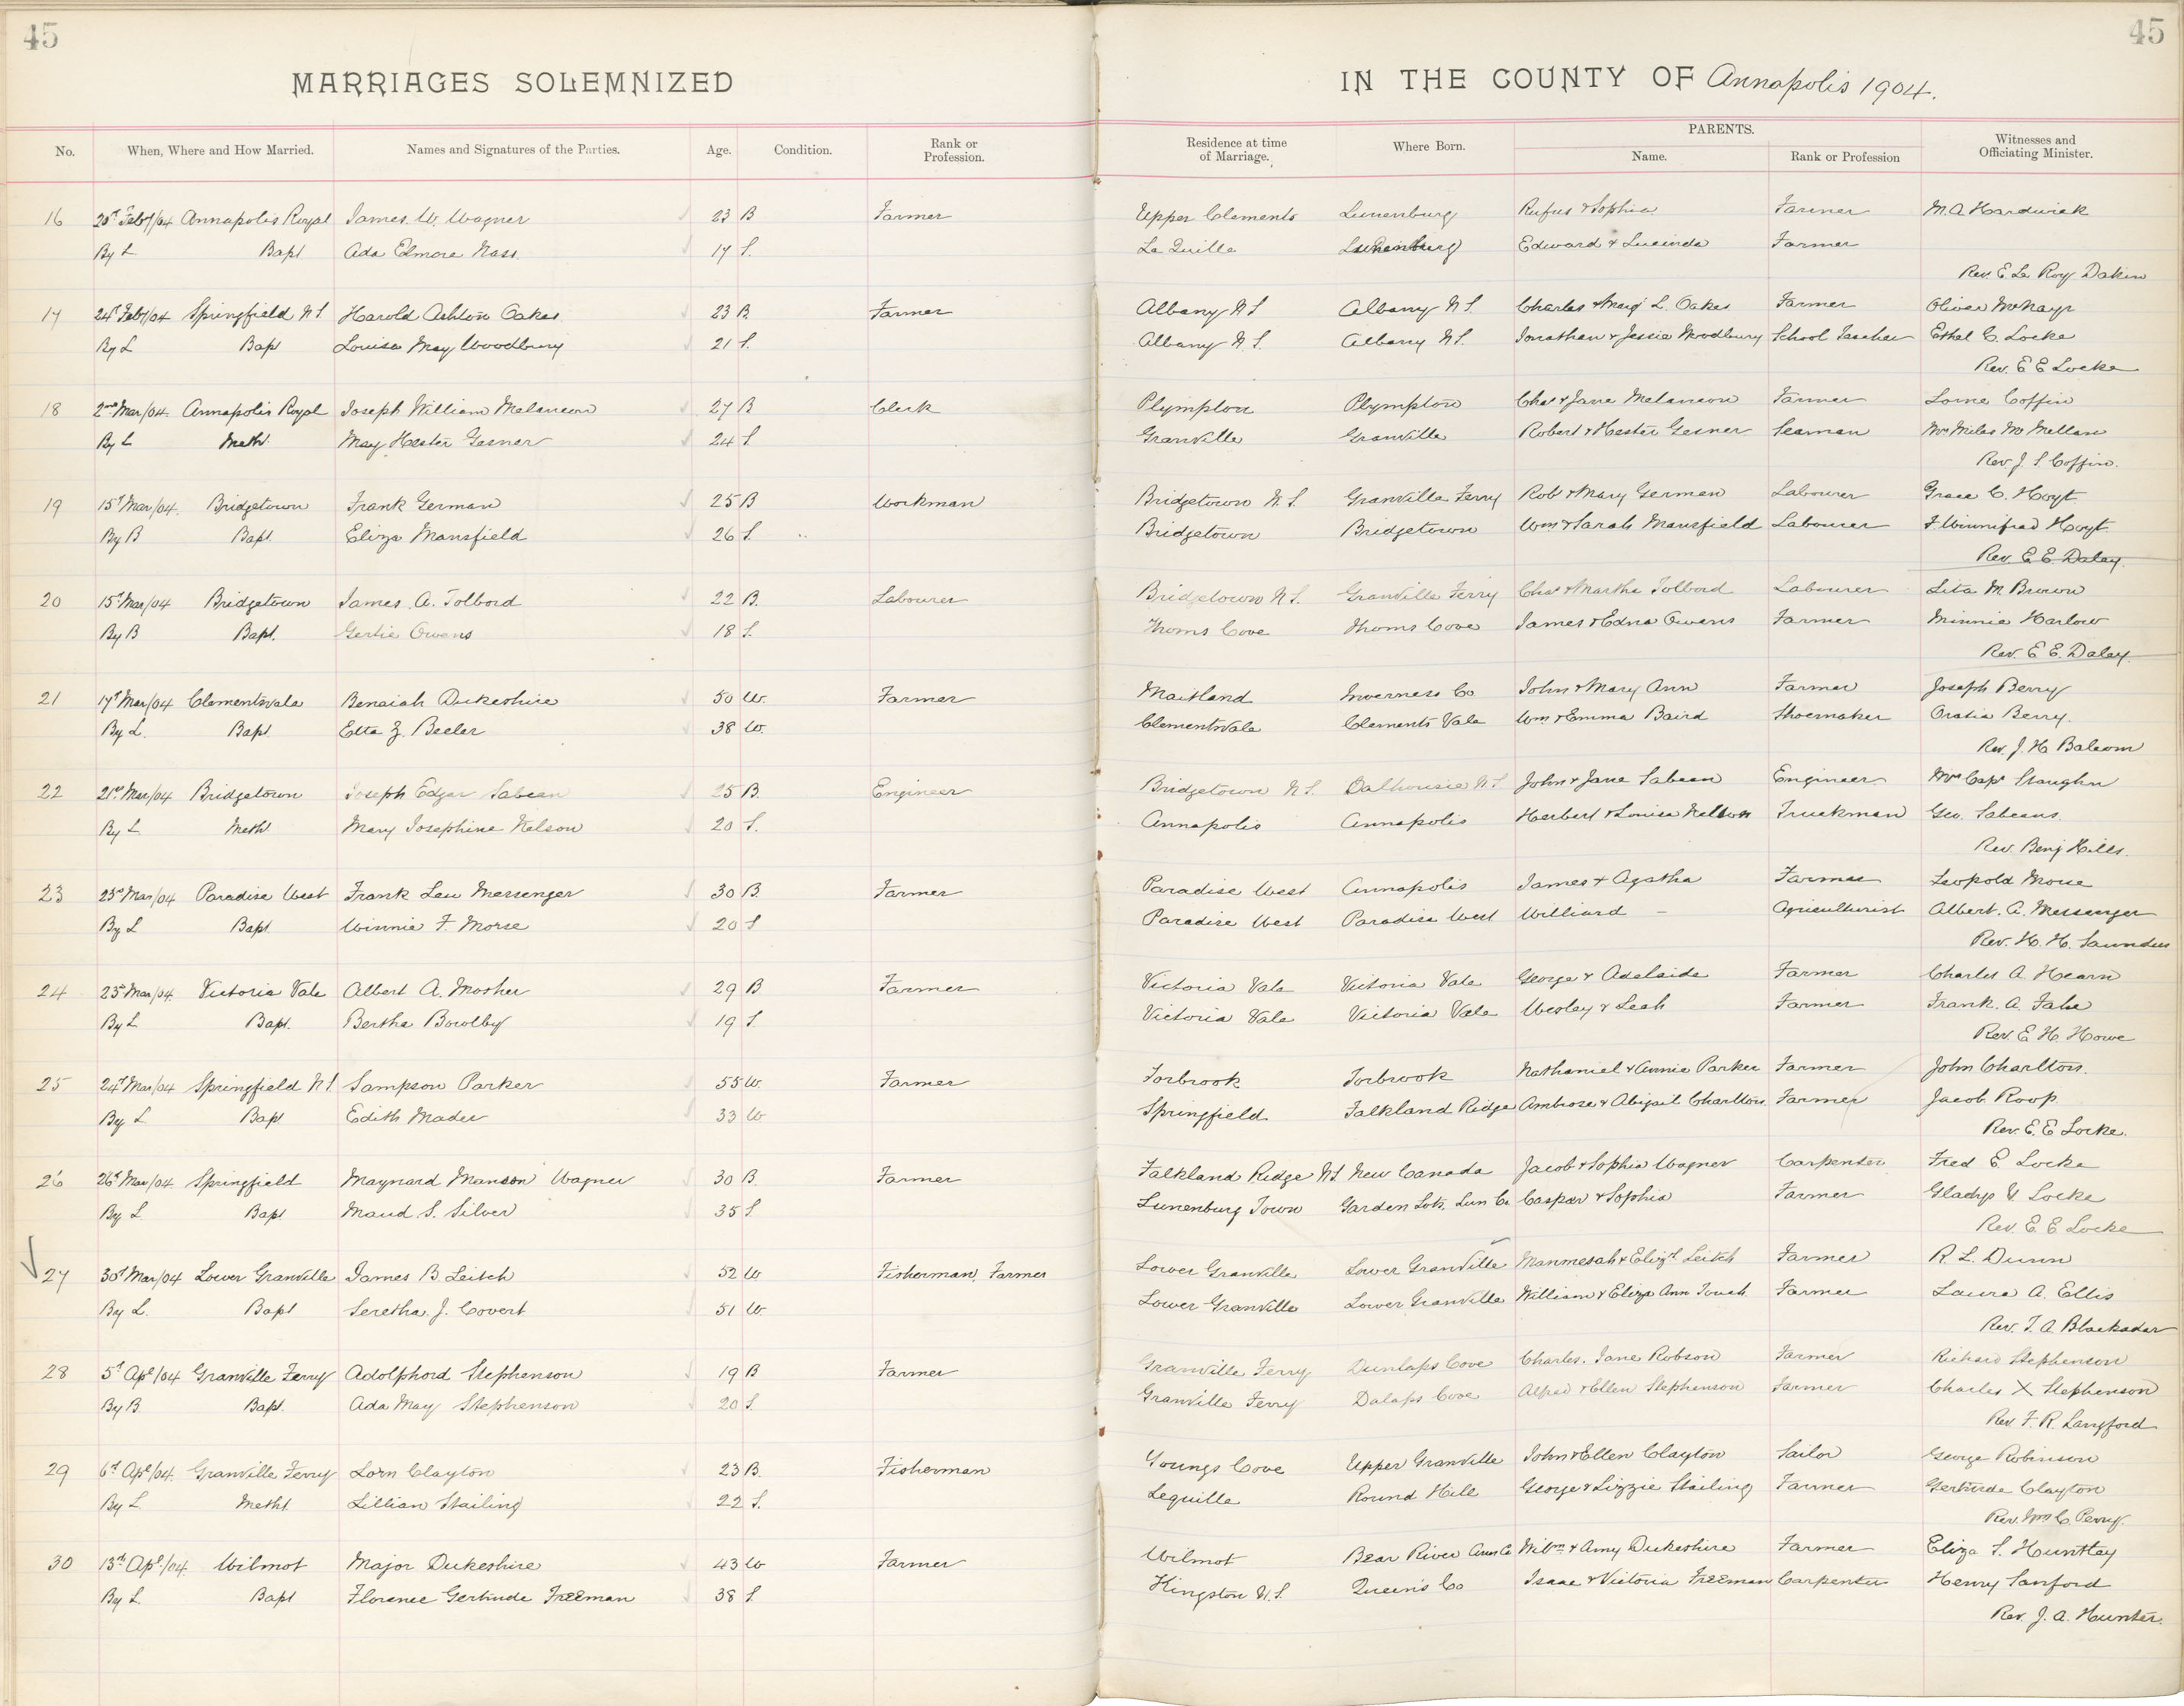 45
45
MARRIAGES SOLEMNIZED IN THE COUNTY OF Annapolis 1904.
No. When, Where and How Married. Names and Signatures of the Parties. Age. Condition. Rank or Profession. Residence at time of Marriage. Where Born. PARENTS. Name. Rank or Profession Witnesses and Officiating Minister.
16 20th Feby/04 Annapolis Royal James W. Wagner 23 B Farmer Upper Clements Lunenburg Rufus & Sophia Farmer M. A. Hardwick
By L Bapt Ada Elmore Nass 17 S. La Quille Lunenburg Edward & Lucinda Farmer
Rev. E La Roy Dakin
17 24th Feby/04 Springfield N S Harold Ashton Oakes 23 B Farmer Albany N S Albany N S. Charles & Margt L. Oakes Farmer Oliver McNayr
By L Bap Louisa May Woodbury 21 S. Albany N. S. Albany N S. Jonathan & Jessie Woodbury School Teacher Ethel C. Locke
Rev. E E Locke
18 2nd Mar/04 Annapolis Royal Joseph William Melancon 27 B Clerk Plympton Plympton Chas & Jane Melancon Farmer Lorne Coffin
By L Meth. May Hester Gesner 24 S Granville Granville Robert & Hester Gesner Seaman Mrs Miles McMellan
Rev. J. S. Coffin.
19 15th Mar/04. Bridgetown Frank German 25 B Workman Bridgetown N. S. Granville Ferry Rob & Mary German Labourer Grace C. Hoyt
By B Bapt. Eliza Mansfield 26 S. Bridgetown Bridgetown Wm & Sarah Mansfield Labourer F. Winnifred Hoyt
Rev. E. E. Daley
20 15th Mar/04 Bridgetown James A. Tolbord 22 B. Labourer Bridgetown N. S. Granville Ferry Chas & Martha Tolbord Labourer Lita M Brown
By B Bapt. Gertie Owens 18 S. Thorns Cove Thorns Cove James & Edna Owens Farmer Minnie Harlow
Rev. E E. Daley
21 17th Mar/04 Clementsvale Benaiah Dukeshire 50 W. Farmer Maitland Inverness Co John & Mary Ann Farmer Joseph Berry
By L. Bapt Etta Z. Beeler 38 W. Clementsvale Clements Vale Wm & Emma Baird Shoemaker Oratia Berry.
Rev. J. H Balcom
22 21st Mar/04 Bridgetown Joseph Edgar Sabean 25 B. Engineer Bridgetown N S. Dalhousie N S. John & Jane Sabean Engineer Mrs Capt Slaughn
By L Meth Mary Josephine Nelson 20 S. Annapolis Annapolis Herbert & Louisa Nelson Truckman Geo. Sabeans.
Rev. Benj Hills.
23 23rd Mar/04 Paradise West Frank Lew Messenger 30 B. Farmer Paradise West Annapolis James & Agatha Farmer Leopold Morse
By L Bapt Winnie F. Morse 20 S Paradise West Paradise West Williard - Agriculturist Albert. A. Messenger
Rev. H. H. Saunders
24 23rd Mar/04. Victoria Vale Albert A. Mosher 29 B Farmer Victoria Vale Victoria Vale George & Adelaide Farmer Charles A Hearn
By L Bapt. Bertha Bowlby 19 S. Victoria Vale Victoria Vale Wesley & Leah Farmer Frank. A. Fales
Rev. E H. Howe
25 24th Mar/04 Springfield N S. Sampson Parker 55 W. Farmer Torbrook Torbrook Nathaniel & Annie Parker Farmer John Charlton.
By L Bapt Edith Mader 33 W Springfield Falkland Ridge Ambrose & Abigail Charlton Farmer Jacob. Roop.
Rev. E. E Locke.
26 26th Mar/04 Springfield Maynard Manson Wagner 30 B. Farmer Falkland Ridge N S. New Canada Jacob & Sophia Wagner Carpenter Fred E. Locke
By L. Bapt Maud. S. Silver 35 S. Lunenburg Town Garden Lots, Lun Co. Caspar & Sophia Farmer Gladys V. Locke
Rev. E. E Locke
27 30th Mar/04 Lower Granville James B. Leitch 52 W Fisherman, Farmer Lower Granville Lower Granville Manmesah & Elizth Leitch Farmer R. L. Dunn
By L. Bapt Seretha. J. Covert 51 W. Lower Granville Lower Granville William & Eliza Ann Farmer Laura A. Ellis
Rev. T. A Blackadar
28 5th Apl/04 Granville Ferry Adolphord Stephenson 19 B Farmer Granville Ferry Dunlaps Cove Charles. Jane Robson Farmer Richard Stephenson
By B. Bapt. Ada May Stephenson 20 S. Granville Ferry Dalaps Cove Alfred & Ellen Stephenson Farmer Charles X Stephenson
Rev F. R. Langford
29 6th Apl/04. Granville Ferry Lorn Clayton 23 B. Fisherman Youngs Cove Upper Granville John & Ellen Clayton Sailor George Robinson
By L. Metht. Lillian Stailing 22 S. Lequille Round Hill George & Lizzie Stailing Farmer Gertrude Clayton
Rev. Wm C. Perry.
30 13th Apl/04. Wilmot Major Dukeshire 43 W Farmer Wilmot Bear River Ann Co Willm & Amy Dukeshire Farmer Eliza S. Huntley
By L. Bapt Florence Gertrude Freeman 38 S. Kingston N. S. Queens Co Isaac & Victoria Freeman Carpenter Henry Sanford
Rev. J. A. Hunter.